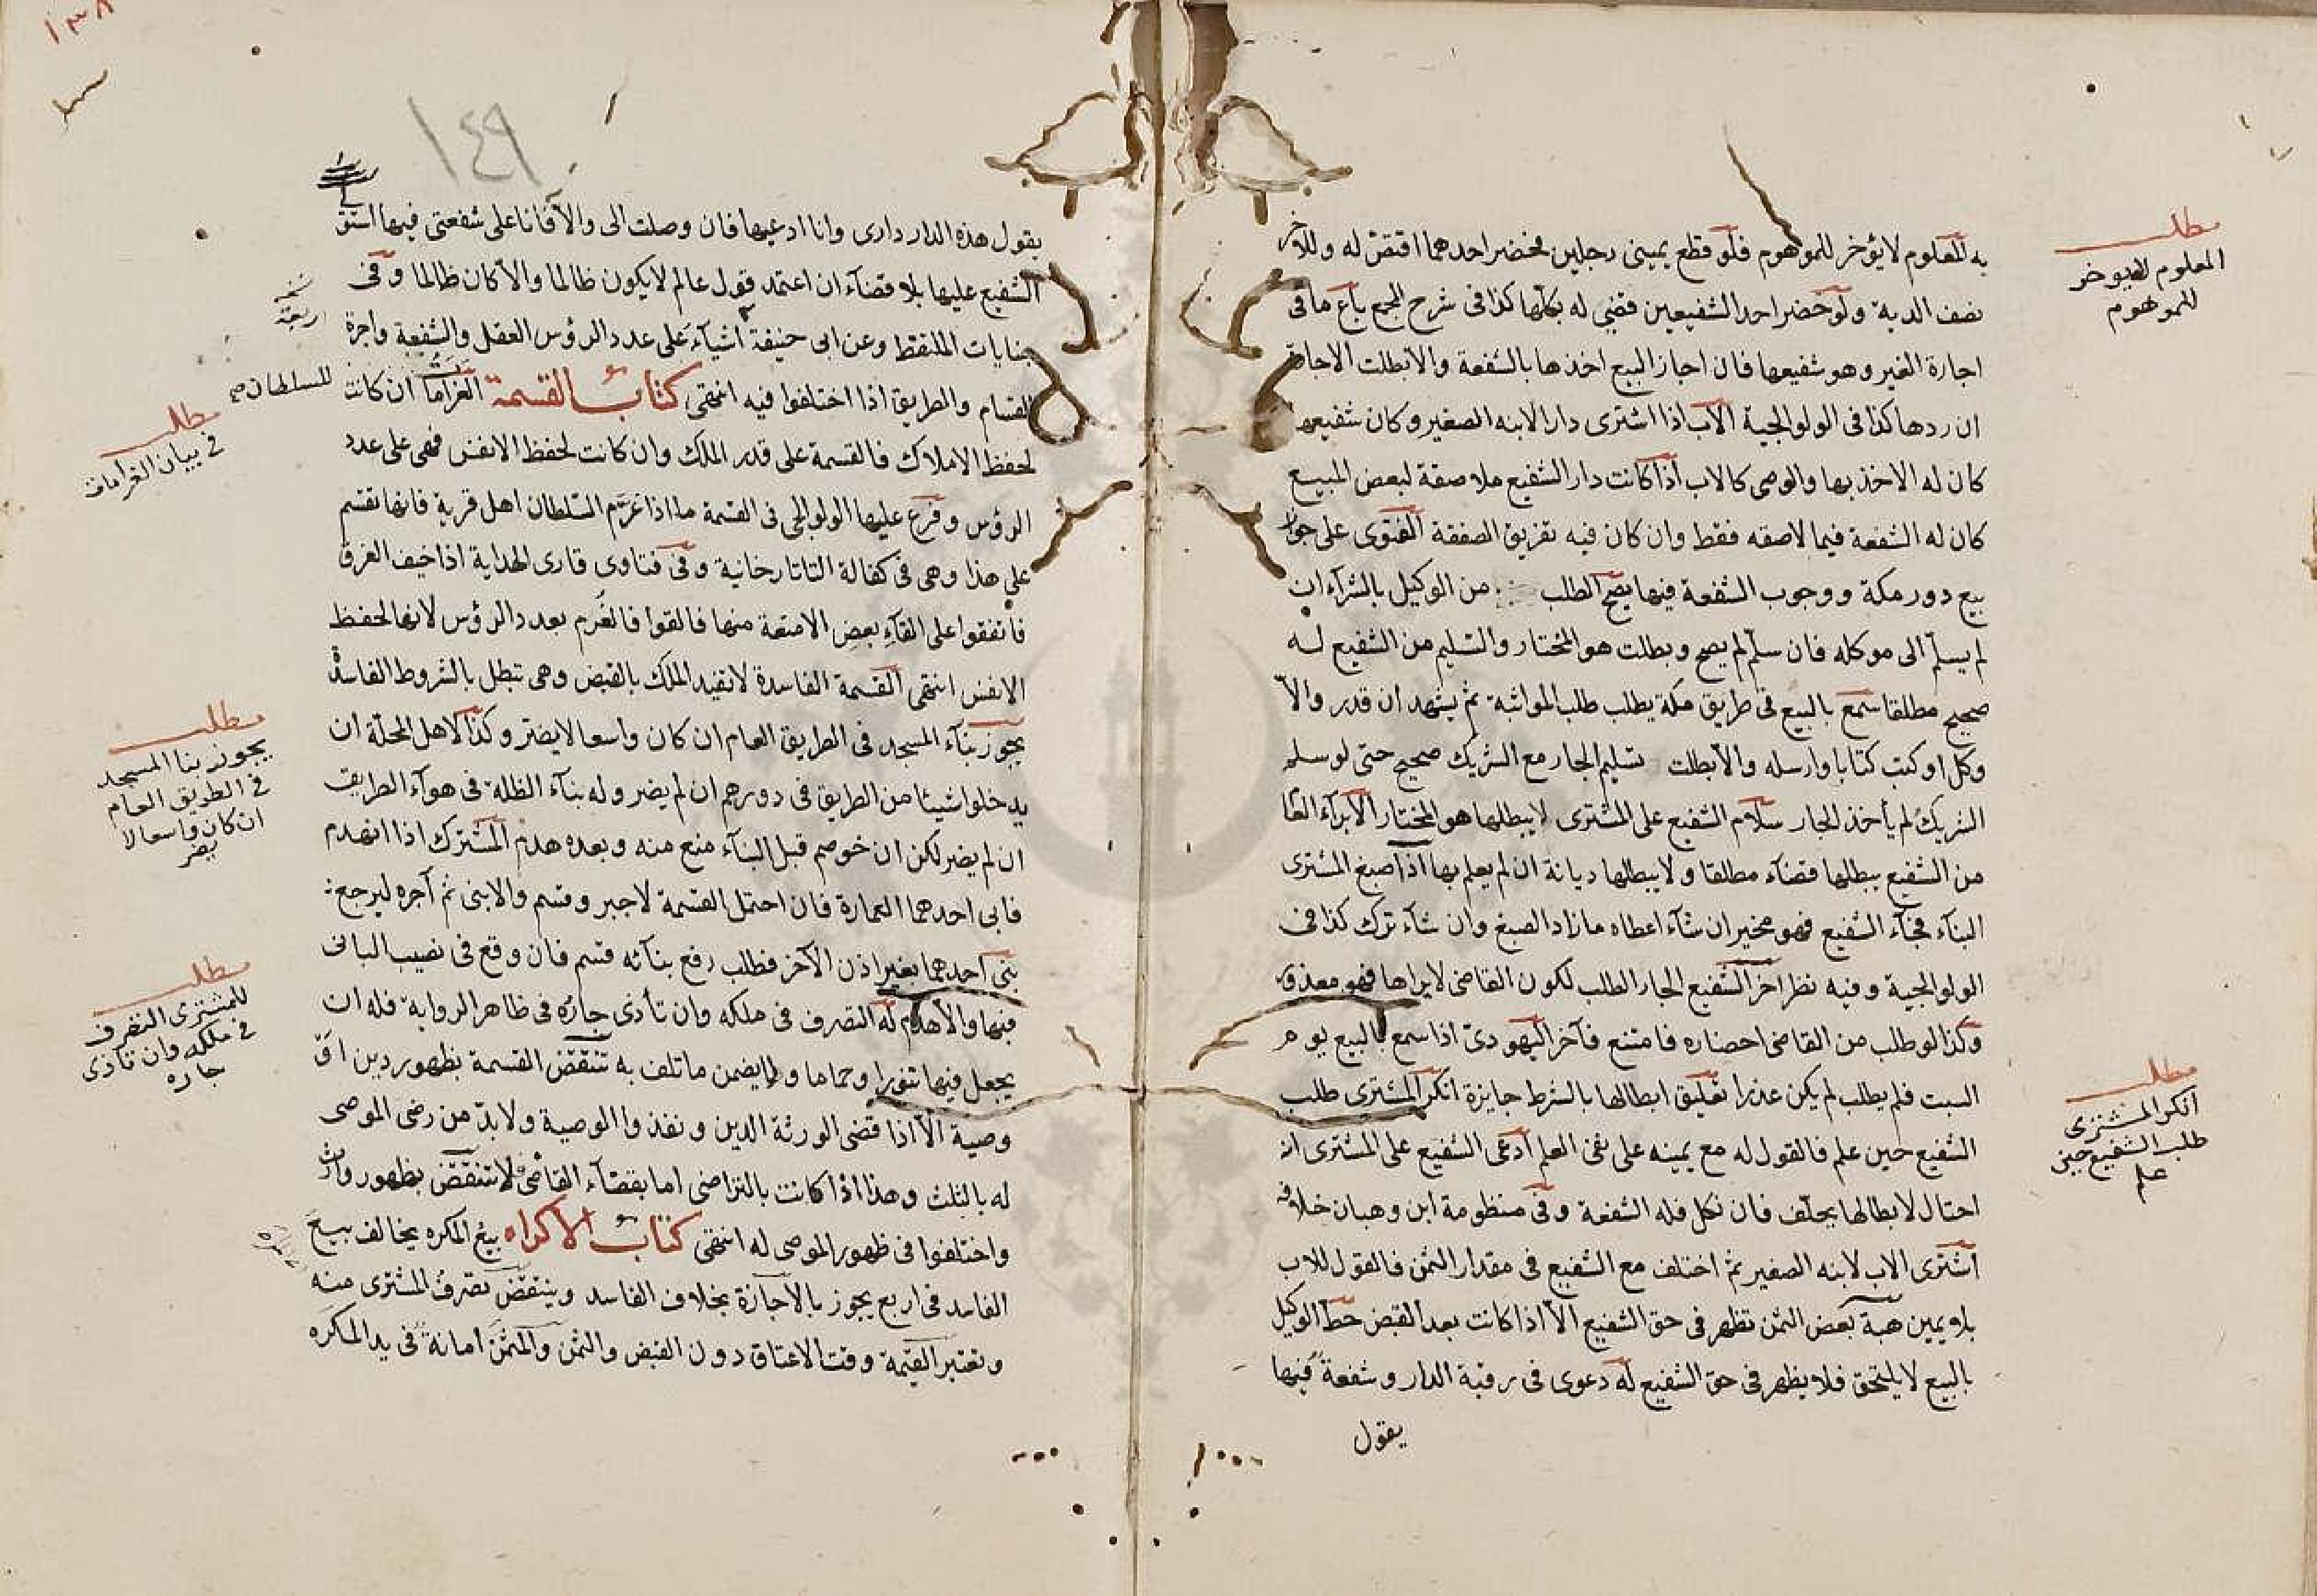 به المعلوم لا يؤخر للموهوم فلو قطع يمينى رجلين فحضر احدهما اقتص له وللاخر
نصف الدية ولو حضر احد الشفيعين قضى له بكلها كذا فى شرح المجمع باع ما فى
اجارة الغير وهو شفيعها فان اجاز البيع اخذها بالشفعة والا بطلت الاجارة
ان ردها كذا فى الولوالجية الاب اذا اشترى دار الابنه الصغير وكان شفيعها
كان له الاخذ بها والوصى كالاب اذا كانت دار الشفيع ملاصقة لبعض المبيع
كان له الشفعة فيما لاصقه فقط وان كان فيه تفريق الصفقة الفتوى على جواز
بيع دور مكة ووجوب الشفعة فيها يصح الطلب من الوكيل بالشرآء ان
لم يسلم الى موكله فان سلم لم يصح وبطلت هو المختار والتسليم من الشفيع له
صحيح مطلقا سمع بالبيع فى طريق مكة يطلب طلب المواثبة ثم يشهد ان قدر والا
وكل او كتب كتابا وارسله والا بطلت تسليم الجار مع الشريك صحيح حتى لو سلم
الشريك لم يأخذ الجار سلام الشفيع على المشترى لا يبطلها هو المختار الابرآء العام
من الشفيع يبطلها قضآء مطلقا ولا يبطلها ديانة ان لم يعلم بها اذا صبغ المشترى
البنآء فجآء الشفيع فهو مخير ان شآء اعطاه ما زاد الصبغ وان شآء ترك كذا فى
الولوالجية وفيه نظر اخر الشفيع الجار الطلب لكون القاضى لا يراها فهو معذور
وكذا لو طلب من القاضى احضاره فامتنع فآخر اليهودى اذا سمع بالبيع يوم
السبت فلم يطلب لم يكن عذرا تعليق ابطالها بالشرط جايزة انكر المشترى طلب
الشفيع حين علم فالقول له مع يمينه على نفى العلم ادعى الشفيع على المشترى انه
احتال لابطالها يحلف فان نكل فله الشفعة وفى منظومة ابن وهبان خلافه
اشترى الاب لابنه الصغير ثم اختلف مع الشفيع فى مقدار الثمن فالقول للاب
بلا يمين هبة بعض الثمن تظهر فى حق الشفيع الا اذا كانت بعد القبض حط الوكيل
بالبيع لا يلتحق فلا يظهر فى حق الشفيع له دعوى فى رقبة الدار وشفعة فيها
يقول
مطلب
المعلوم لا يوخر
للموهوم
مطلب
انكر المشترى
طلب الشفيع حين
علم
١٣٨
١٤٩
يقول هذه الدار دارى وانا ادعيها فان وصلت الى والا فانا على شفعتى فيها استولى
الشفيع عليها بلا قضآء ان اعتمد قول عالم لا يكون ظالما والا كان ظالما وفى
جنايات الملتقط وعن ابى حنيفة اشيآء على عدد الرؤس العقل والشفعة واجرة
القسام والطريق اذا اختلفوا فيه انتهى كتاب القسمة الغرامات ان كانت
لحفظ الاملاك فالقسمة على قدر الملك وان كانت لحفظ الانفس فهى على عدد
الرؤس وفرع عليها الولوالجى فى القسمة ما اذا غرم السلطان اهل قرية فانها تقسم
على هذا وهى فى كفالة التاتارخانية وفى فتاوى قارى الهداية اذا خيف الغرق
فاتفقوا على القآء بعض الامتعة منها فالقوا فالغرم بعدد الرؤس لانها لحفظ
الانفس انتهى القسمة الفاسدة لا تفيد الملك بالقبض وهى تبطل بالشروط الفاسدة
يجوز بنآء المسجد فى الطريق العام ان كان واسعا لا يضر وكذا لاهل المحلة ان
يدخلوا شيئا من الطريق فى دورهم ان لم يضر وله بنآء الظلة فى هوآء الطريق
ان لم يضر لكن ان خوصم قبل البنآء منع منه وبعده هدم المشترك اذا انهدم
فابى احدهما العمارة فان احتمل القسمة لا جبر وقسم والا بنى ثم آجره ليرجع
بنى احدهما بغير اذن الآخر فطلب رفع بنآئه قسم فان وقع فى نصيب البانى
فيها والا هدم له التصرف فى ملكه وان تأذى جاره فى ظاهر الرواية فله ان
يجعل فيها تنورا وحماما ولا يضمن ما تلف به تنتقض القسمة بظهور دين او
وصية الا اذا قضى الورثة الدين ونفذوا الوصية ولا بد من رضى الموصى
له بالثلث وهذا اذا كانت بالتراضى اما بقضآء القاضى لا تنتقض بظهور وارث
واختلفوا فى ظهور الموصى له انتهى كتاب الاكراه بيع المكره يخالف بيع
الفاسد فى اربع يجوز بالاجازة بخلاف الفاسد وينتقض تصرف المشترى منه
وتعتبر القيمة وقت الاعتاق دون القبض والثمن والمثمن امانة فى يد المكره
للسلطان صح
مطلب
فى بيان الغرامات
مطلب
يجوز بنا المسجد
فى الطريق العام
ان كان واسعا لا
يضر
مطلب
للمشترى التصرف
فى ملكه وان تاذى
جاره